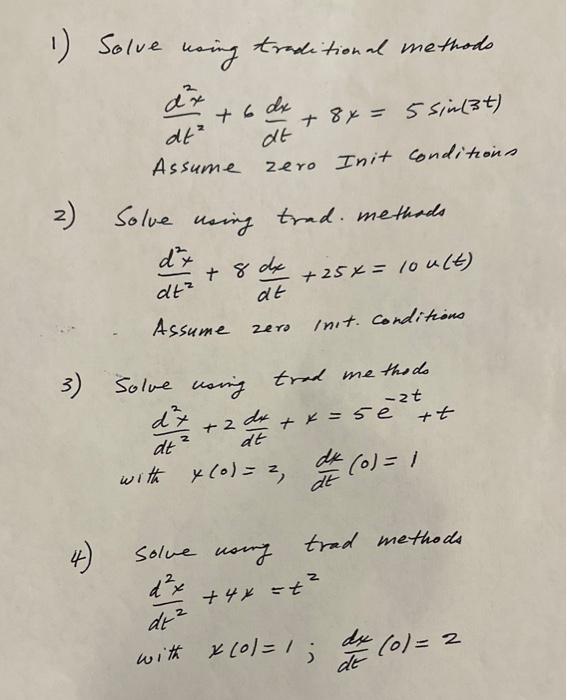 1) Solve using traditional methods
d²x/dt² + 6 dx/dt + 8x = 5 sin(3t)
Assume zero Init conditions
2) Solve using trad. methods
d²x/dt² + 8 dx/dt + 25x = 10 u(t)
Assume zero init. conditions
3) Solve using trad methods
d²x/dt² + 2 dx/dt + x = 5e^-2t + t
with x(0) = 2, dx/dt (0) = 1
4) Solve using trad methods
d²x/dt² + 4x = t²
with x(0) = 1 ; dx/dt (0) = 2